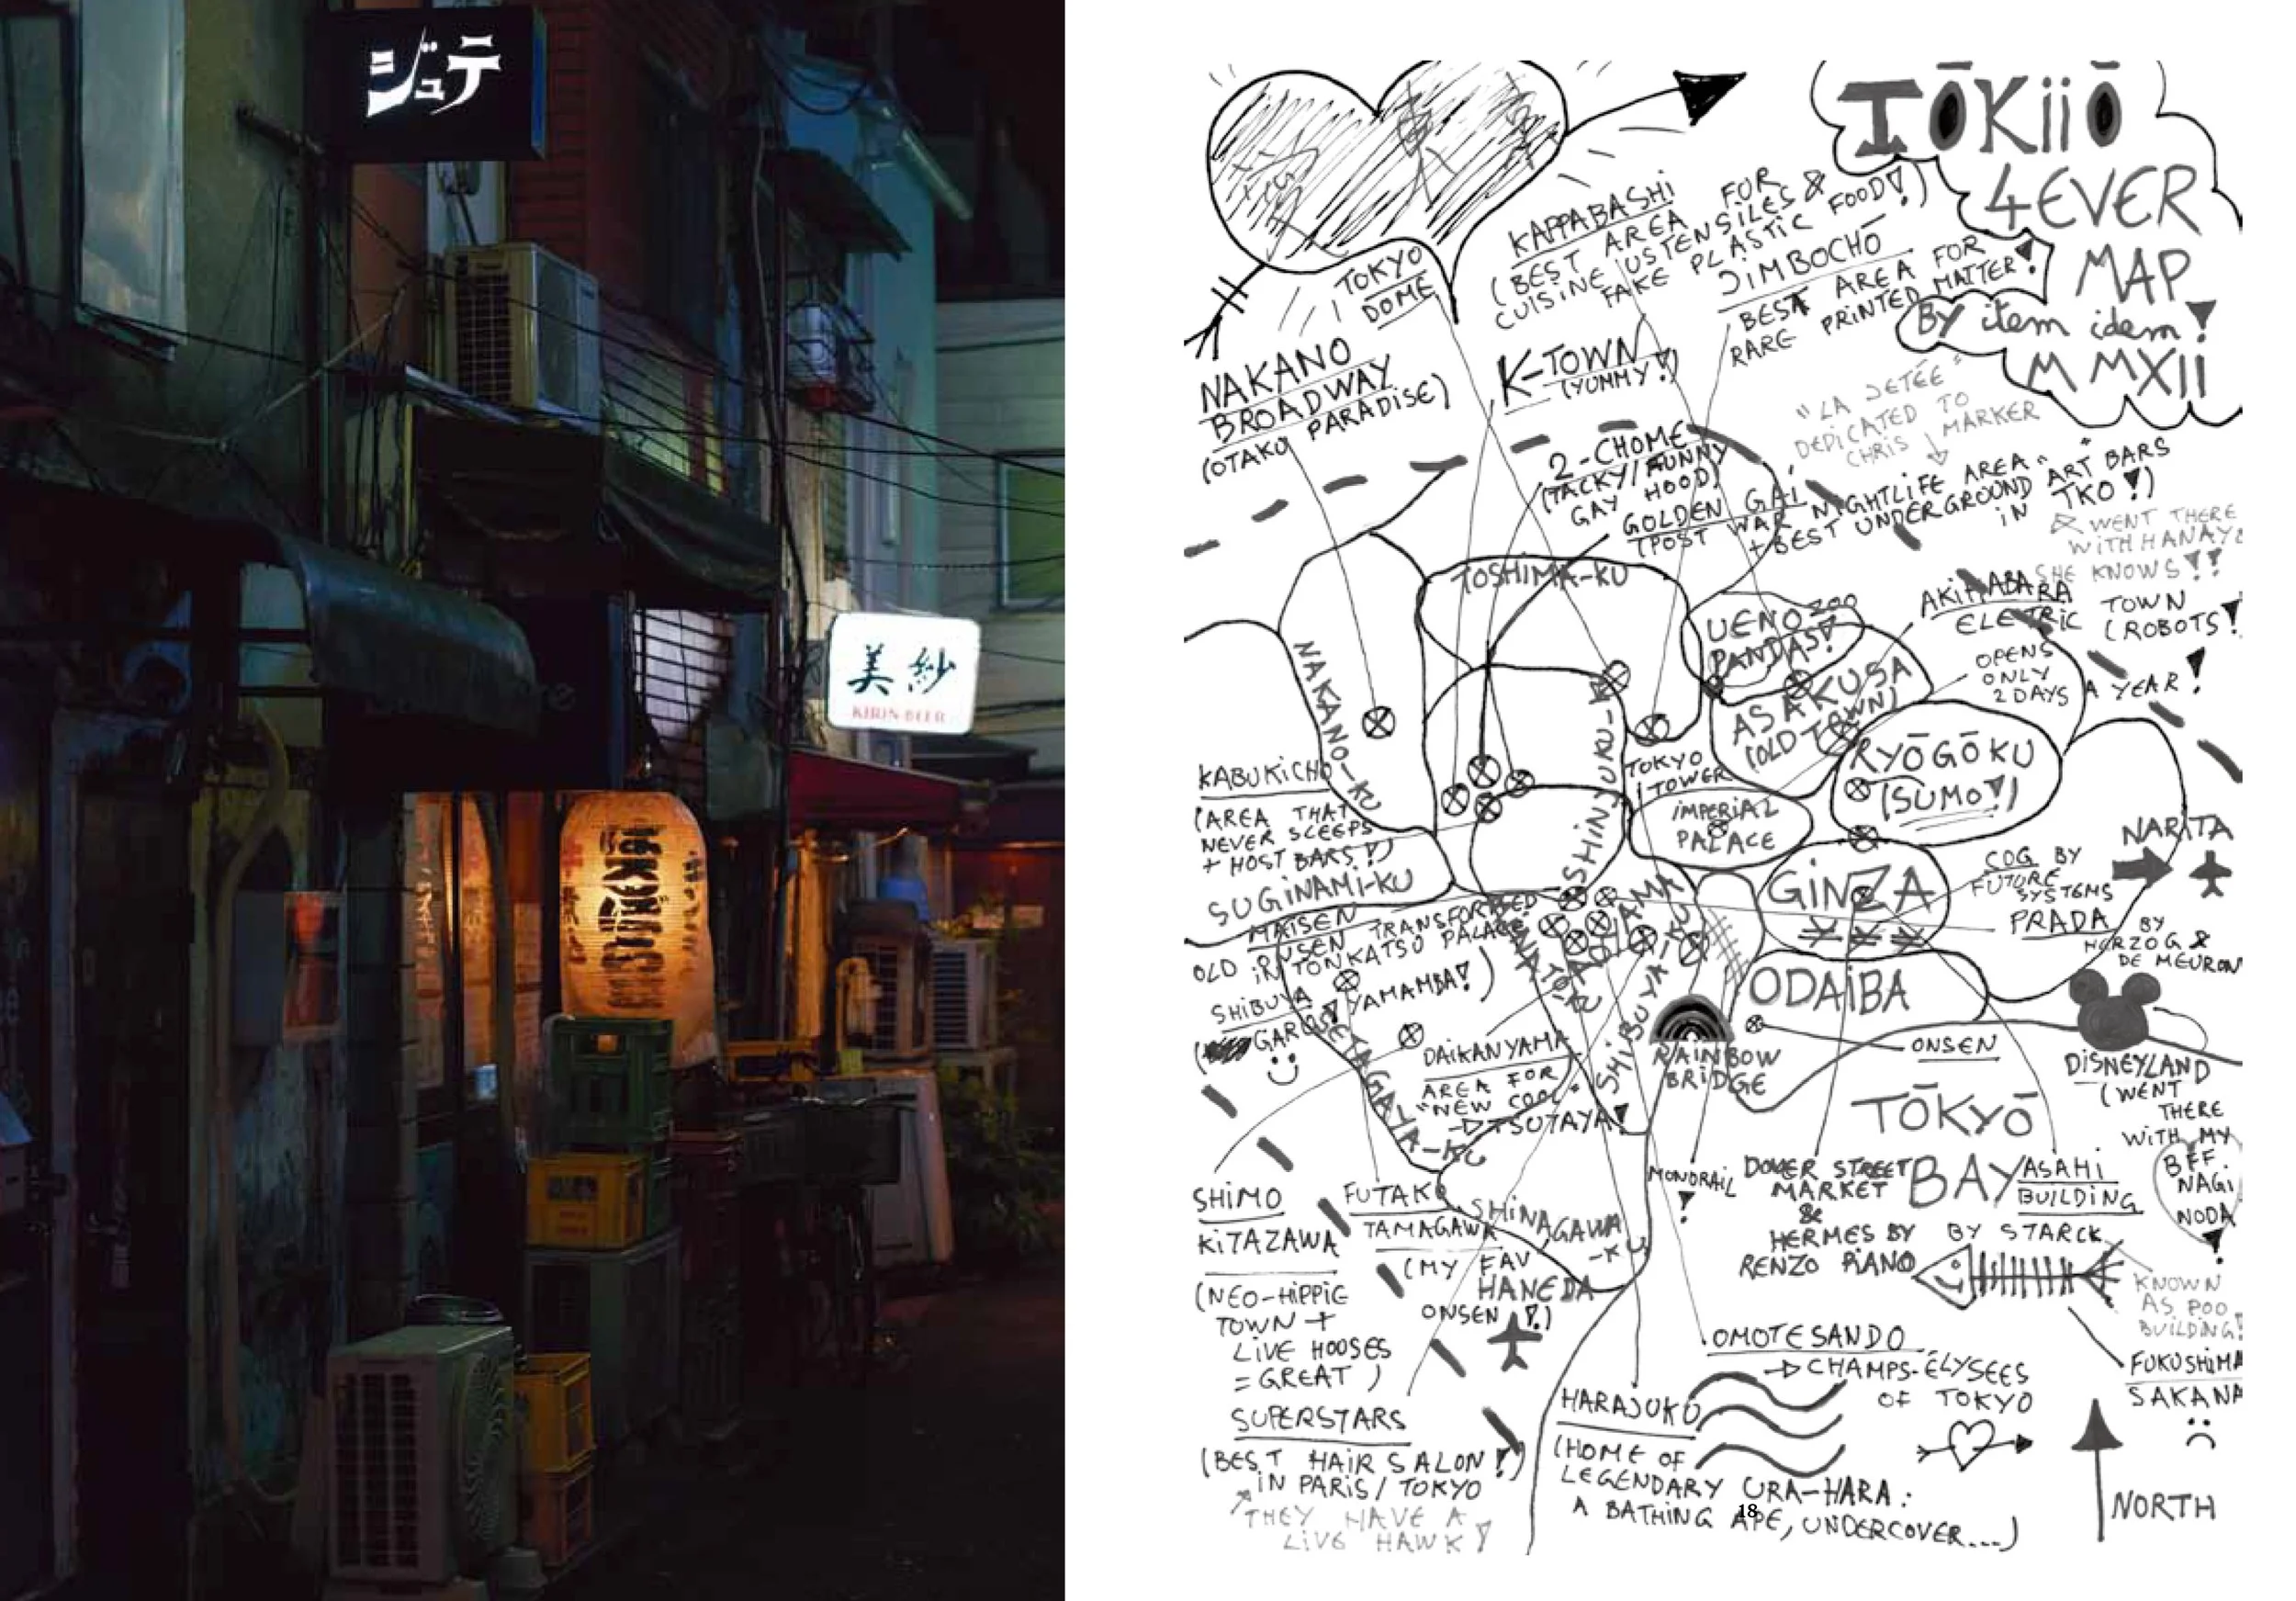 ジュテ
美紗
KIRIN BEER
TŌKiiŌ
4EVER
MAP
BY item idem!
MMXII
TOKYO
DOME
KAPPABASHI
(BEST AREA FOR
CUISINE USTENSILES &
FAKE PLASTIC FOOD!)
JIMBOCHŌ
BEST AREA FOR
RARE PRINTED MATTER!
NAKANO
BROADWAY
(OTAKU PARADISE)
K-TOWN
(YUMMY!)
"LA JETÉE"
DEDICATED TO
CHRIS MARKER
2-CHOME
(TACKY/FUNNY
GAY HOOD)
GOLDEN GAI
(POST WAR NIGHTLIFE AREA
+ BEST UNDERGROUND "ART BARS"
IN TKO!)
WENT THERE
WITH HANAYO
SHE KNOWS!!
TOSHIMA-KU
UENO ZOO
PANDAS!
AKIHABARA
ELETRIC TOWN
(ROBOTS!
OPENS
ONLY
2 DAYS A YEAR!
NAKANO-KU
ASAKUSA
(OLD TOWN)
SHINJUKU-K
RYŌGŌKU
(SUMO!)
KABUKICHO
(AREA THAT
NEVER SLEEPS
+ HOST BARS!)
TOKYO
TOWER
IMPERIAL
PALACE
NARITA
SUGINAMI-KU
GINZA
¥ ¥ ¥
COG BY
FUTURE
SYSTEMS
PRADA
BY
HERZOG &
DE MEURON
MAISEN
OLD ONSEN TRANSFORMED
IN TONKATSU PALACE
SHIBUYA
YAMAMBA!)
MINATO-KU
AOYAMA
SHIBUYA-KU
SETAGAYA-KU
ODAIBA
RAINBOW
BRIDGE
ONSEN
DISNEYLAND
(WENT
THERE
WITH MY
BFF
NAGI
NODA
DAIKANYAMA
AREA FOR
"NEW COOL"
TSUTAYA!
TŌKYŌ
BAY
SHIMO
KITAZAWA
(NEO-HIPPIE
TOWN +
LIVE HOOSES
= GREAT)
FUTAKO
TAMAGAWA
(MY FAV
ONSEN!)
SHINAGAWA
-KU
HANEDA
MONORAIL
!
DOVER STREET
MARKET
&
HERMES BY
RENZO PIANO
ASAHI
BUILDING
BY STARCK
KNOWN
AS POO
BUILDING!
FUKUSHIMA
SAKANA
OMOTESANDO
CHAMPS-ÉLYSEES
OF TOKYO
SUPERSTARS
(BEST HAIR SALON!)
IN PARIS/TOKYO
THEY HAVE A
LIVE HAWK!
HARAJUKU
(HOME OF
LEGENDARY URA-HARA:
A BATHING APE, UNDERCOVER...)
NORTH
18